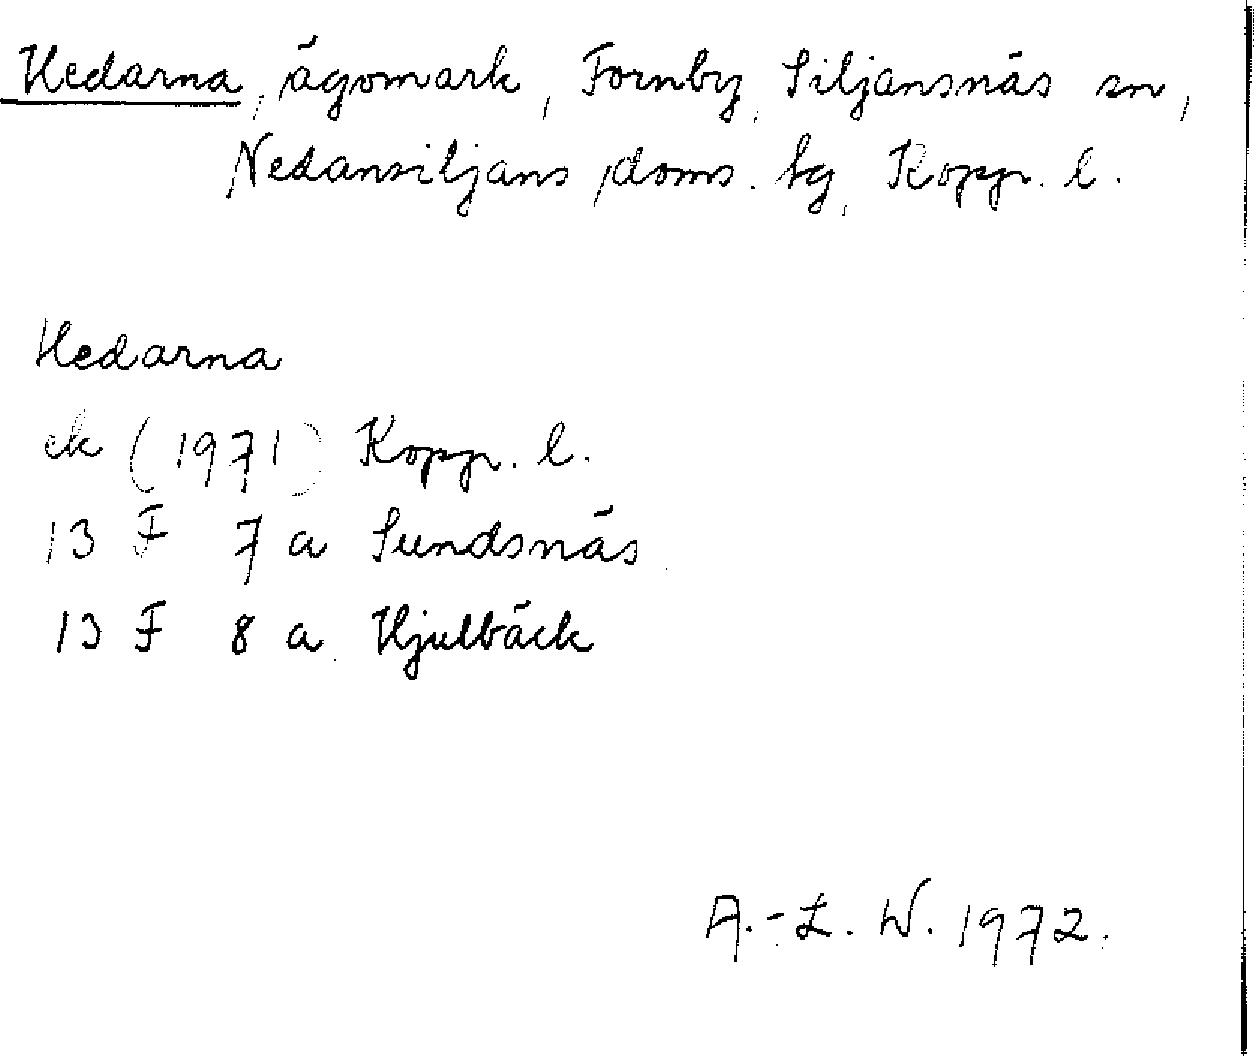 Hedarna, ägomark, Fornby, Siljansnäs sn,
Nedansiljans doms. tg, Kopp. l.
Hedarna
ek (1971) Kopp. l.
13 F 7 a Sundsnäs
13 F 8 a Hjulbäck
A.-L. W. 1972.